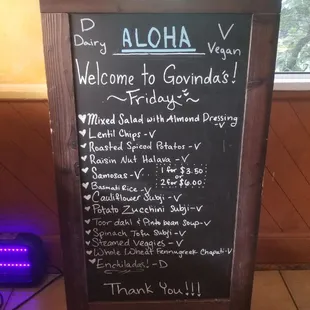 D
Dairy
ALOHA
V
Vegan
Welcome to Govinda's!
~Friday~
Mixed Salad with Almond Dressing -V
Lentil Chips -V
Roasted Spiced Potatos -V
Raisin Nut Halava -V
Samosas -V
1 for $3.50
or
2 for $6.00
Basmati Rice -V
Cauliflower Subji -V
Potato Zucchini Subji -V
Toor dahl & Pinto bean Soup -V
Spinach Tofu Subji -V
Steamed Veggies -V
Whole Wheat Fennugreek Chapati -V
Enchiladas! -D
Thank You!!!